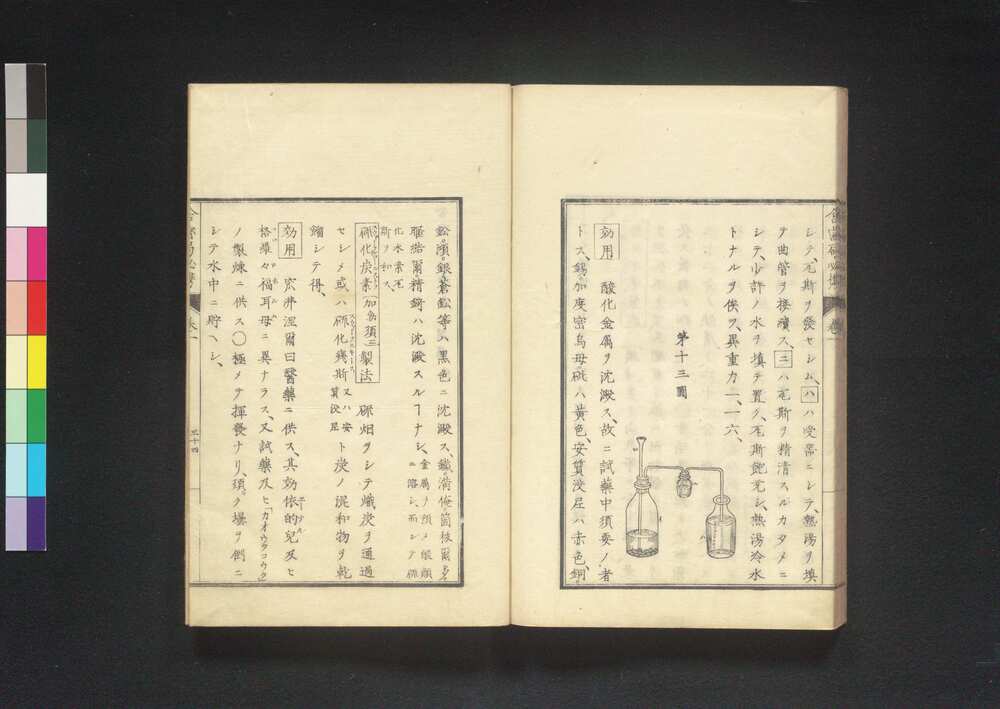 シテ、瓦斯ヲ發セシム、ハハ受器ニシテ、熱湯ヲ填
ヲ曲管ヲ接續ス、ニハ瓦斯ヲ精清スルカタメニ
シテ、少許ノ水ヲ填テ置ク、瓦斯飽充シ、熱湯冷水
トナルヲ俟ツ、異重力一、一六、
第十三圖
効用 酸化金属ヲ沈澱ス、故ニ試藥中須要ノ者
トス、錫加度密烏母砒ハ黄色、安質没尼ハ赤色、銅
鉛、濵、銀、蒼鉛等ハ黒色ニ沈澱ス、鐵滿俺箇抜爾多
ハ沈澱スルヿナシ、金属ヲ預メ
硫化炭素 製法 硫烟ヲシテ熾炭ヲ通過
セシメ或ハ硫化幾斯又ハ安質没尼ト炭ノ混和物ヲ乾
餾シテ得、
効用 尼爾曰醫藥ニ供ス、其効依的兒及ヒ
格羅々福耳母ニ異ナラス、又試藥及ヒ「カオウタコウク」
ノ製煉ニ供ス〇極メテ揮發ナリ、須ク壜ヲ倒ニ
シテ水中ニ貯ヘシ、
卷一
三十四